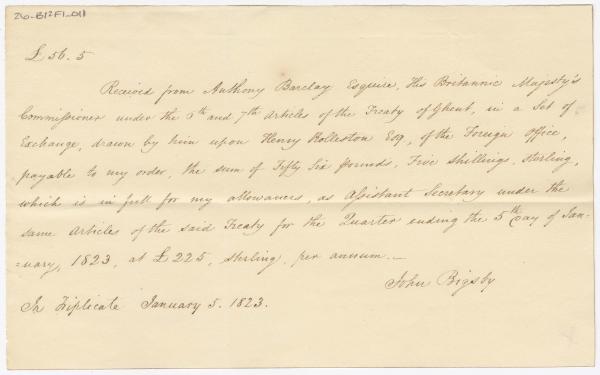 26-B12F1-011
£56.5
Received from Anthony Barclay Esquire, His Britannic Majesty's
Commissioner under the 6th and 7th Articles of the Treaty of Ghent, in a Set of
Exchange, drawn by him upon Henry Rolleston Esq, of the Foreign Office,
payable to my order, the sum of Fifty Six pounds, Five Shillings, sterling,
which is in full for my allowances, as Assistant Secretary under the
same Articles of the said Treaty for the Quarter ending the 5th day of Jan-
=uary, 1823, at £225, sterling, per annum.—
John Bigsby
In Triplicate January 5. 1823.